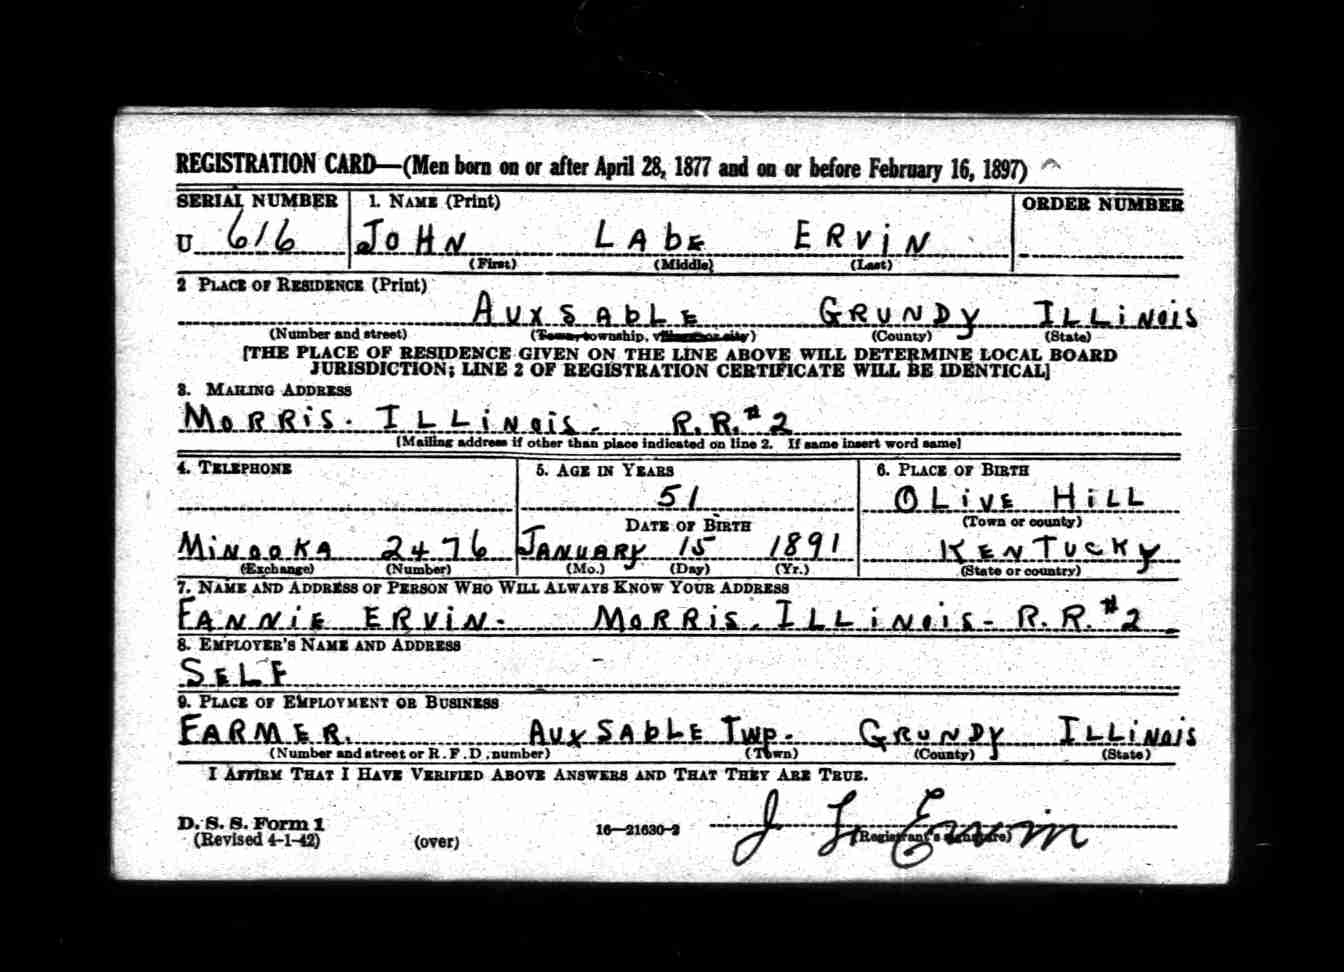 REGISTRATION CARD—(Men born on or after April 28, 1877 and on or before February 16, 1897)
SERIAL NUMBER 1. NAME (Print) ORDER NUMBER
U 616 JOHN LAbE ERViN
(First) (Middle) (Last)
2 PLACE OF RESIDENCE (Print)
AUXSAbLE GRUNDY ILLiNois
(Number and street) (Town, township, village or city) (County) (State)
[THE PLACE OF RESIDENCE GIVEN ON THE LINE ABOVE WILL DETERMINE LOCAL BOARD
JURISDICTION; LINE 2 OF REGISTRATION CERTIFICATE WILL BE IDENTICAL]
3. MAILING ADDRESS
MORRiS. ILLiNois. R.R.#2
[Mailing address if other than place indicated on line 2. If same insert word same]
4. TELEPHONE 5. AGE IN YEARS 6. PLACE OF BIRTH
51 OLiVE HiLL
DATE OF BIRTH (Town or county)
MiNOOKA 2476 JANUARY 15 1891 KENTUCKY
(Exchange) (Number) (Mo.) (Day) (Yr.) (State or country)
7. NAME AND ADDRESS OF PERSON WHO WILL ALWAYS KNOW YOUR ADDRESS
FANNiE ERViN. MORRiS. ILLiNois- R.R.#2
8. EMPLOYER'S NAME AND ADDRESS
SELF
9. PLACE OF EMPLOYMENT OR BUSINESS
FARMER. AUXSAbLE TWP. GRUNDY ILLiNois
(Number and street or R. F. D. number) (Town) (County) (State)
I AFFIRM THAT I HAVE VERIFIED ABOVE ANSWERS AND THAT THEY ARE TRUE.
D. S. S. Form 1
(Revised 4-1-42) (over) 16—21630-2 J L Ervin
(Registrant's signature)